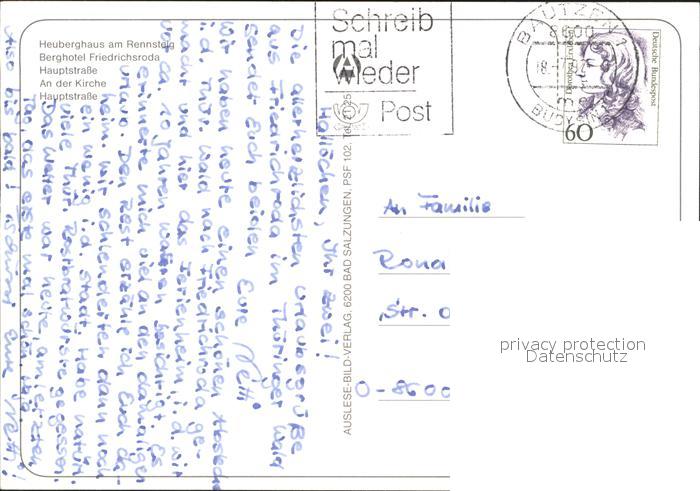 Heuberghaus am Rennsteig
Berghotel Friedrichsroda
Hauptstraße
An der Kirche
Hauptstraße
Schreib
mal
wieder
Post
BAUTZEN 1
8600
BUDYŠIN
Deutsche Bundespost
60
Hallöchen, Ihr zwei!
Die allerherzlichsten Urlaubsgrüße
aus Friedrichroda im Thüringer Wald
sendet Euch beiden Eure Netti
Wir haben heute einen schönen Abstecher
i.d. Thür. Wald nach Friedrichroda ge-
macht und hier das Ferienheim, i.d. wir
vor ca. 10 Jahren waren besichtigt. Es
erinnerte mich viel an den damaligen
Urlaub. Den Rest erzähle ich Euch da-
heim. Wir schlenderten dann noch
ein wenig i.d. Stadt. Habe natürl.
viele Thür. Rostbratwürste gegessen.
Das Wetter war heute, am letzten
Tag, das erste mal schön
Also bis bald! Eure Netti!
AUSLESE-BILD-VERLAG, 6200 BAD SALZUNGEN, PSF 102, Tel.
An Familie
Rona
Str.
O-8600
privacy protection
Datenschutz